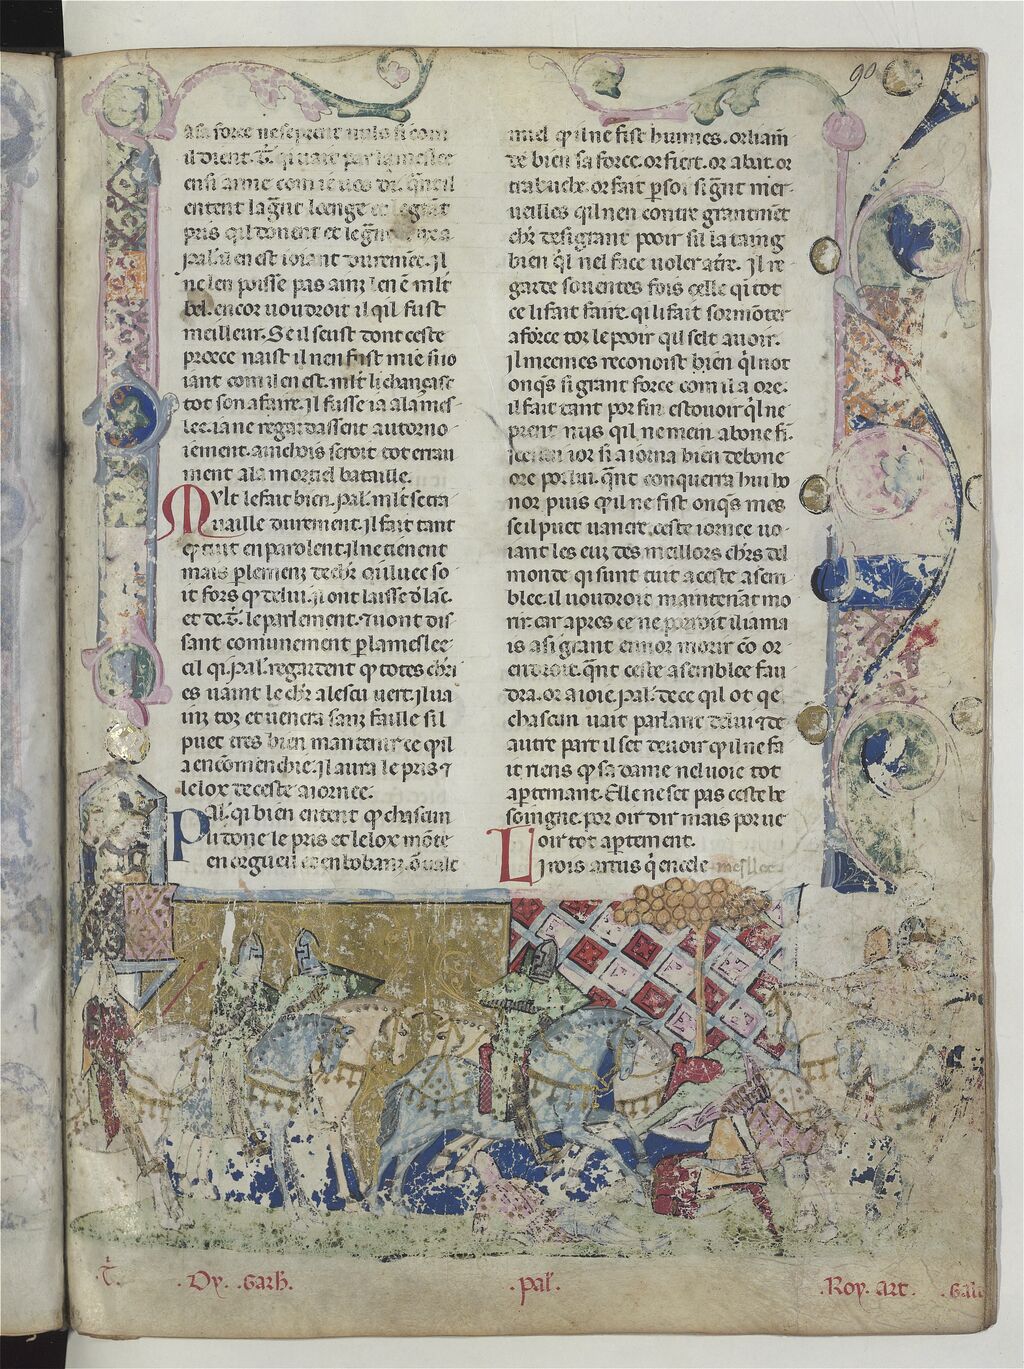 90
a sa force ne se prent nuls si com
il dient. T. qi uait par la meslee
ensi arme com ie uos di. qant il
entent la grant loenge et le grant
pris qil donent et le
pal. il en est ioiant durement. Il
ne len poisse pas ainz len est mlt
bel. encor uoudroit il qil fust
meilleur. Se il seust dont ceste
proece naist il nen fust mie si io
iant com il en est. mlt li changast
tot son afaire. Il fusse ia a la mes-
lee. ia ne regardassent au torno-
iement. ainchois seroit tot errau
ment a la mortel bataille.
Mlt le fait bien. pal. mlt se tra-
uaille durement. il fait tant
qe tuit en parolent. il ne tienent
mais plement de chr qi luec so
it fors qe de lui. il ont laisse d lac.
et de. T. le parlement. et uont dis-
sant comunement par la meslee
cil qi. pal. regardent qe totes chri
es uaint le chr a lescu uert. il ua
int tot et uencra sanz faille sil
puet tres bien mantenir ce qil
a encomenchie. il aura le pris et
le lox de ceste aiornee.
Pal. qi bien entent qe chascun
li done le pris et le lox monte
en orgueil et en bobanz. or uale
miel qil ne fist huimes. or haim
de bien sa force. or fiert. or abat. or
trabuche. or fait par soi si grant mer-
ueilles qil nen contre grantment
chr de si grant pooir sil lataing
bien qil nel face uoler a tre. Il re-
garde souentes fois celle qi tot
ce li fait faire. qi li fait sormonter
a force tot le pooir qil selt auoir.
Il meemes reconoist bien qil not
onqes si grant force com il a ore.
il fait tant por fin estouoir qil ne
prent nus qil ne mein a bone fi.
ior si a iorna bien debone
ore por lui. qant conquerra hui ho
nor puis qil ne fist onqes mes
se il puet uancre ceste iornee uo-
iant les euz des meillors chrs del
monde qi sunt tuit a ceste asem
blee. il uoudroit maintenant mo
rir. car apres ce ne porroit il iama
is a si grant ennor morir com or-
endroit. qant ceste asemblee fau
dra. or a ioie. pal. de ce qil ot qe
chascun uait parlant de lui et de
autre part il set de uoir qil ne fa
it riens qe sa dame nel uoie tot
apertemant. Elle ne set pas ceste be
soingne. por oir dir mais por ue
oir tot apertement.
Li rois artus qi en cele meslee
.T.
.Dy. .Garh.
.pal.
.Roy. art.